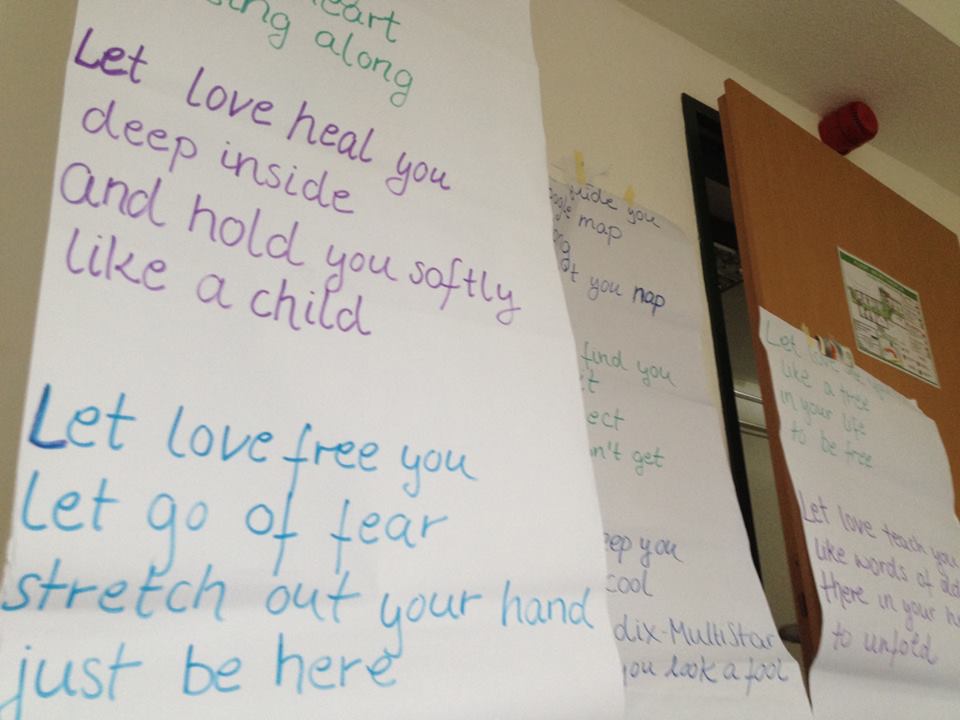 heart
sing along
Let love heal you
deep inside
and hold you softly
like a child
Let love free you
Let go of fear
stretch out your hand
just be here
guide you
map
you nap
find you
ect
n't get
you
cool
dix-MultiStar
you look a fool
Let love
like a tree
in your life
to be free
Let love teach you
like words of
there in your
to unfold